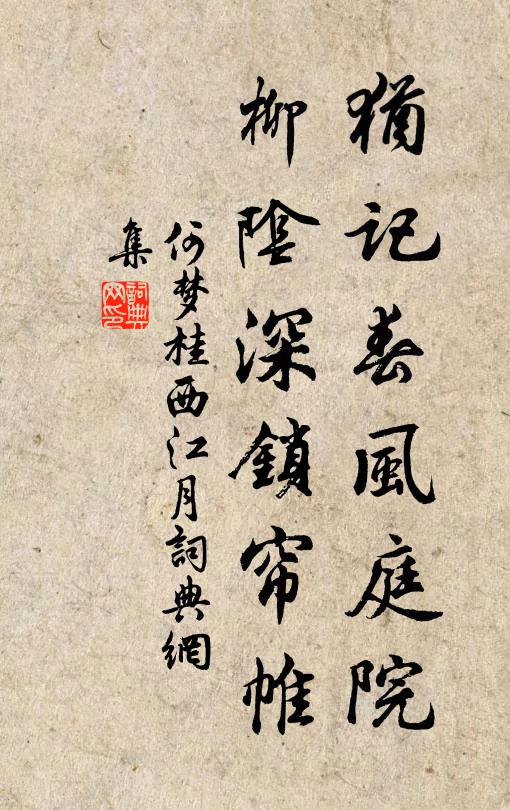 猶記春風庭院
柳陰深鎖帘帷
何梦桂西江月詞典網
集
詞典
网印